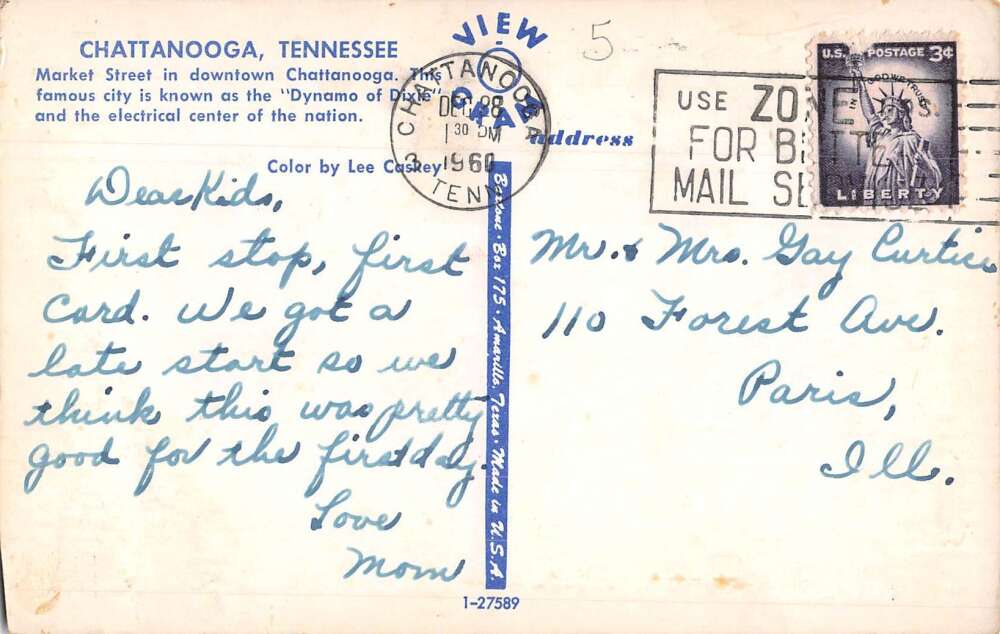 CHATTANOOGA, TENNESSEE
Market Street in downtown Chattanooga. This
famous city is known as the "Dynamo of Dixie"
and the electrical center of the nation.
Color by Lee Caskey
VIEW
address
CHATTANOOGA
DEC 28
1 30 PM
1960
TENN
3
5
USE ZON
FOR B TTE
MAIL SE
U.S. POSTAGE 3¢
IN GOD WE TRUST
LIBERTY
Dear Kids,
First stop, first
card. We got a
late start so we
think this was pretty
good for the first day.
Love
Mom
Baxtone · Box 175 · Amarillo, Texas · Made in U.S.A.
Mr. & Mrs. Gay Curtice
110 Forest Ave.
Paris,
Ill.
1-27589